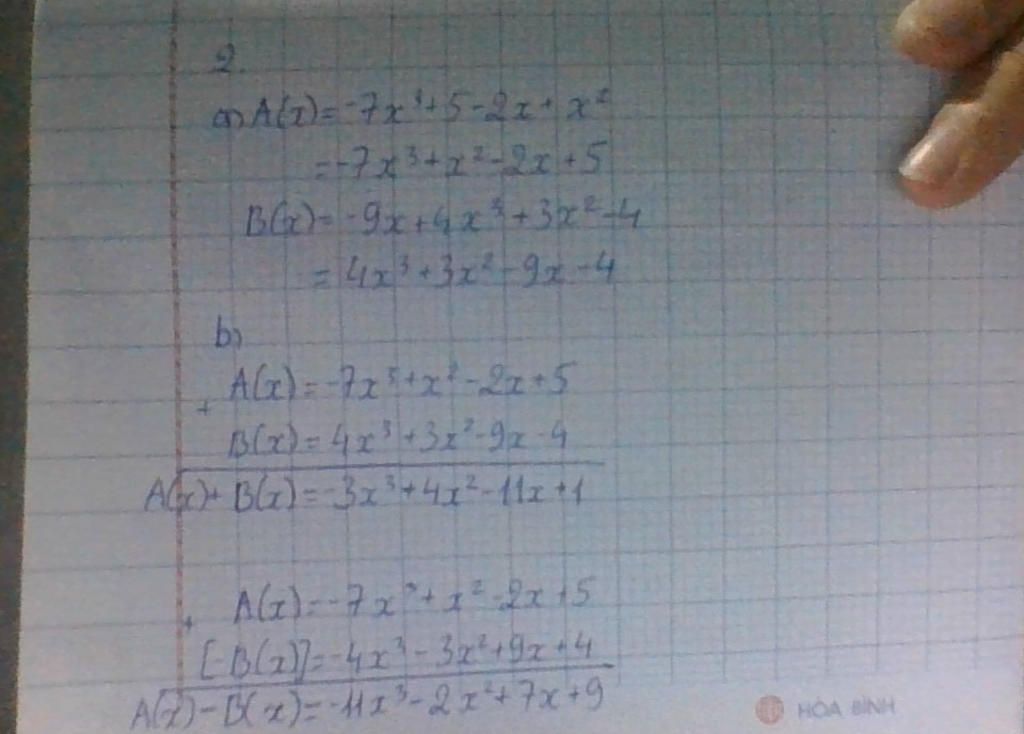 2.
a) A(x) = -7x³ + 5 - 2x + x²
= -7x³ + x² - 2x + 5
B(x) = -9x + 4x³ + 3x² - 4
= 4x³ + 3x² - 9x - 4
b)
A(x) = -7x³ + x² - 2x + 5
+
B(x) = 4x³ + 3x² - 9x - 4
A(x) + B(x) = -3x³ + 4x² - 11x + 1
A(x) = -7x³ + x² - 2x + 5
+
[-B(x)] = -4x³ - 3x² + 9x + 4
A(x) - B(x) = -11x³ - 2x² + 7x + 9
HÒA BÌNH